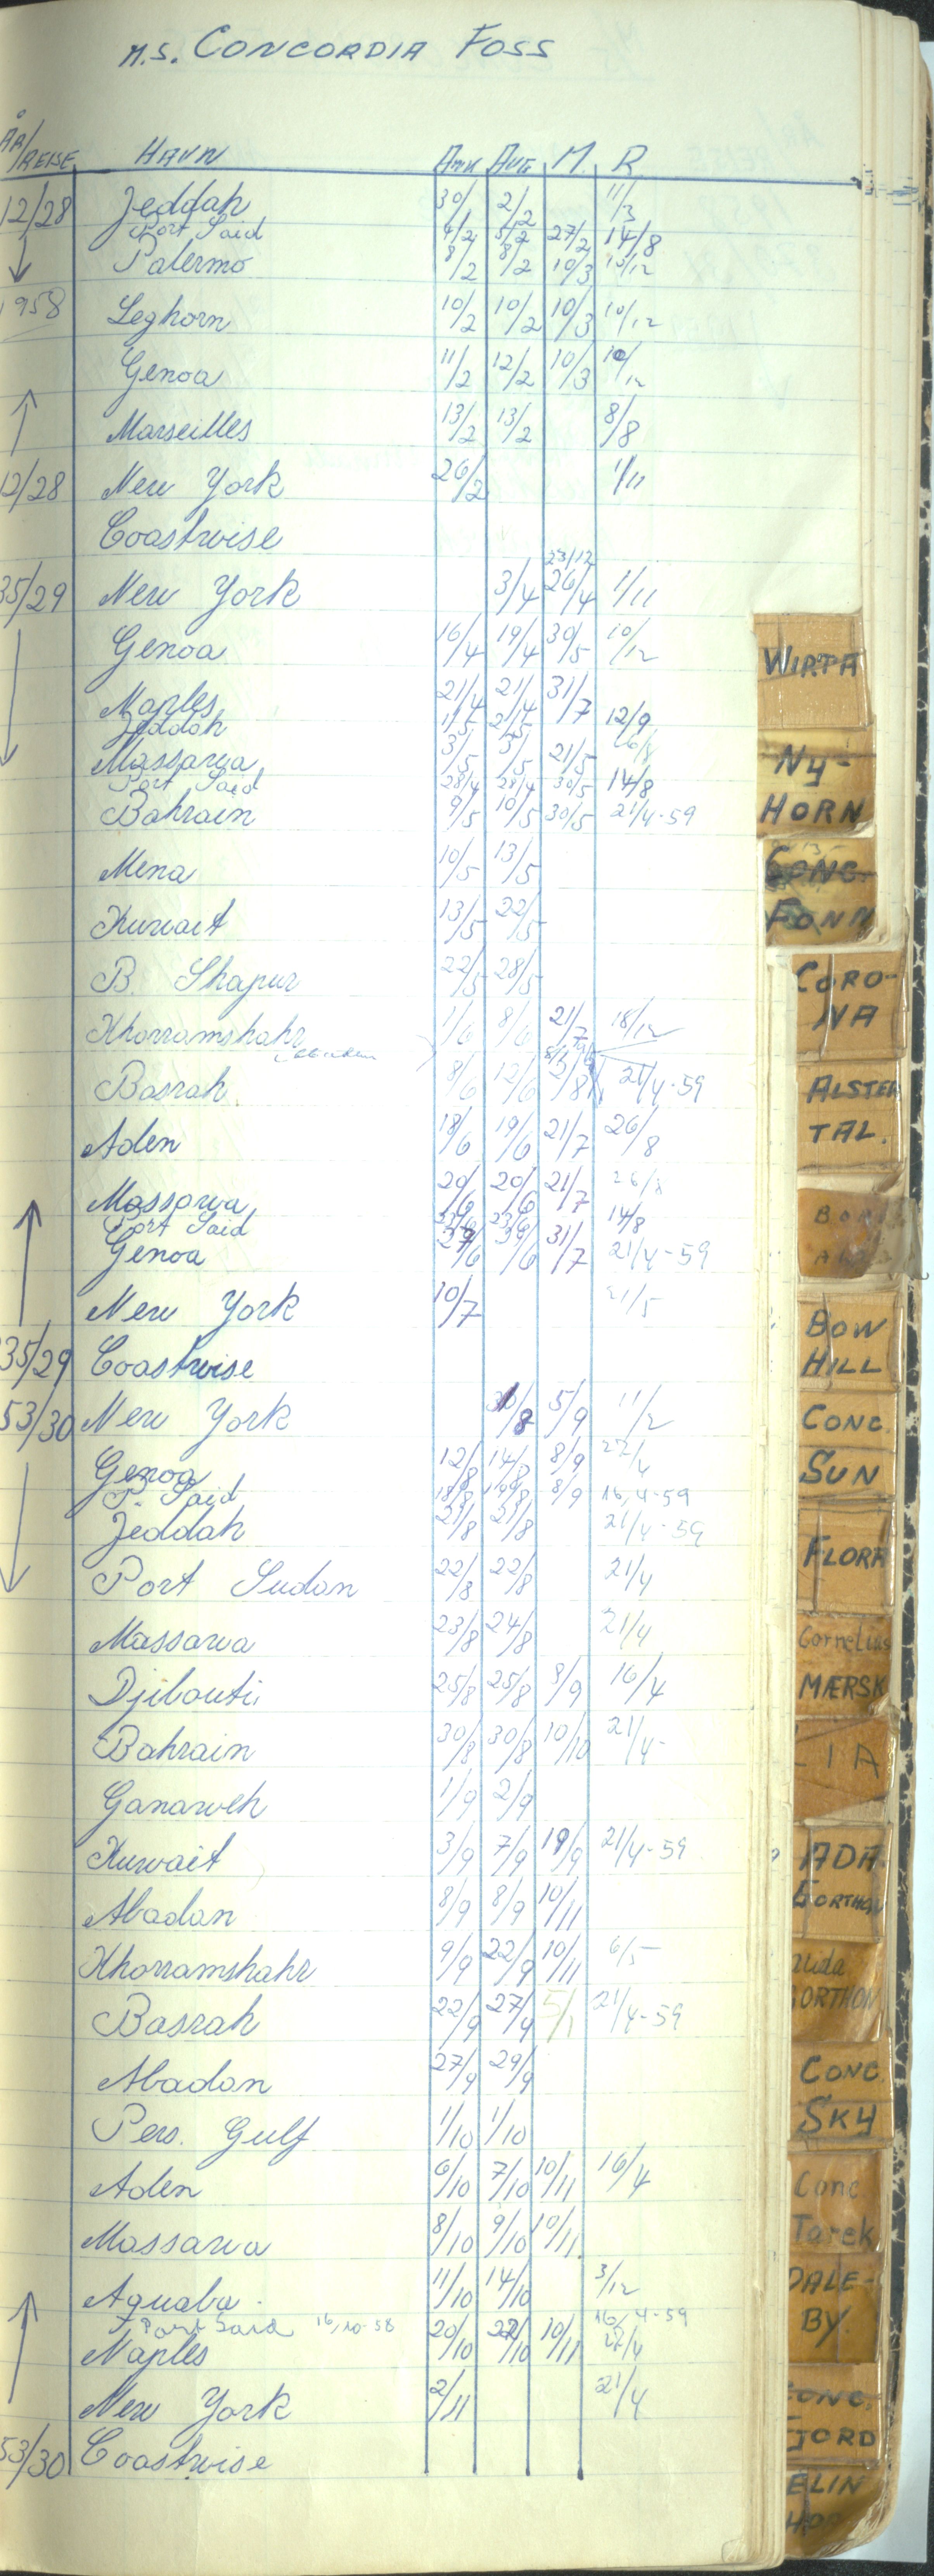 M.S. CONCORDIA FOSS
ÅR/REISE HAVN ANK AVG M. R
12/28 Jeddah 30/ 2/2 11/3
Port Said 4/2 5/2 27/2 14/8
Palermo 8/2 8/2 10/3 10/12
1958 Leghorn 10/2 10/2 10/3 10/12
Genoa 11/2 12/2 10/3 10/12
Marseilles 13/2 13/2 8/8
12/28 New York 26/2 1/11
Coastwise
23/12
35/29 New York 3/4 26/4 1/11
Genoa 16/4 19/4 30/5 10/12
Naples 21/4 21/4 31/7
Jeddah 1/5 2/5 12/9
Massawa 3/5 3/5 21/5 26/8
Port Said 28/4 28/4 30/5 14/8
Bahrain 9/5 10/5 30/5 21/4-59
Mena 10/5 13/5
Kuwait 13/5 22/5
B. Shapur 22/5 28/5
Khorramshahr 1/6 8/6 21/7 18/12
Basrah 8/6 12/6 21/4-59
Aden 18/6 19/6 21/7 26/8
Massawa 20/6 20/6 21/7 26/8
Port Said 14/8
Genoa 31/7 21/4-59
New York 10/7 21/5
35/29 Coastwise
53/30 New York 5/9 11/2
Genoa 12/8 14/8 8/9
P. Said 8/9 16/4-59
Jeddah 21/8 21/8 21/4-59
Port Sudan 22/8 22/8 21/4
Massawa 23/8 24/8 21/4
Djibouti 25/8 25/8 8/9 16/4
Bahrain 30/8 30/8 10/10 21/4-
Ganaweh 1/9 2/9
Kuwait 3/9 7/9 19/9 21/4-59
Abadan 8/9 8/9 10/11
Khorramshahr 9/9 22/9 10/11 6/5
Basrah 22/9 27/9 5/1 21/4-59
Abadan 27/9 29/9
Pers. Gulf 1/10 1/10
Aden 6/10 7/10 10/11 16/4
Massawa 8/10 9/10 10/11
Aquaba 11/10 14/10 3/12
Port Said 16/10-58 16/4-59
Naples 20/10 22/10 10/11 22/4
New York 2/11 21/4
53/30 Coastwise
WIRTA
NY-
HORN
CONC.
FONN
CORO-
NA
ALSTER
TAL.
BOW
HILL
CONC.
SUN
FLORA
Cornelius
MÆRSK
LIA
ADA
GORTHON
GORTHON
CONC
SKY
Conc
Tarek
DALE-
BY.
CONC.
FJORD
ELIN